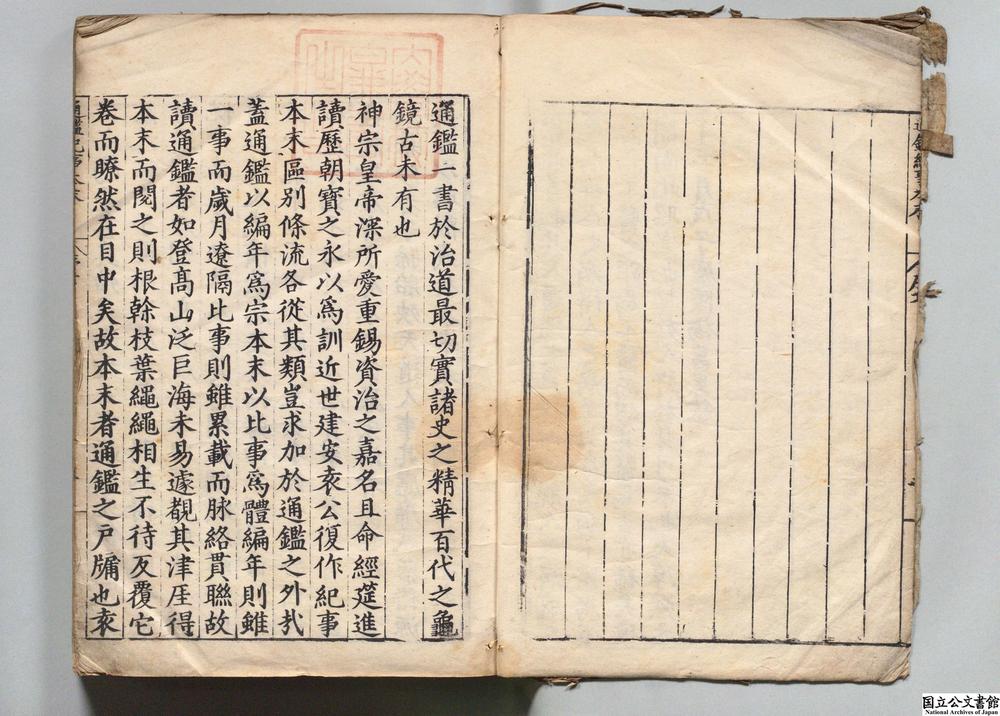 通鑑一書於治道最切實諸史之精華百代之龜
鏡古未有也
神宗皇帝深所愛重錫資治之嘉名且命經筵進
讀歷朝寶之永以爲訓近世建安袁公復作紀事
本末區別條流各從其類豈求加於通鑑之外㢤
蓋通鑑以編年爲宗本末以比事爲體編年則雖
一事而歲月遼隔比事則雖累載而脉絡貫聯故
讀通鑑者如登髙山泛巨海未易遽覩其津厓得
本末而閱之則根幹枝葉繩繩相生不待反覆它
卷而瞭然在目中矣故本末者通鑑之戸牖也袁
国立公文書館
National Archives of Japan